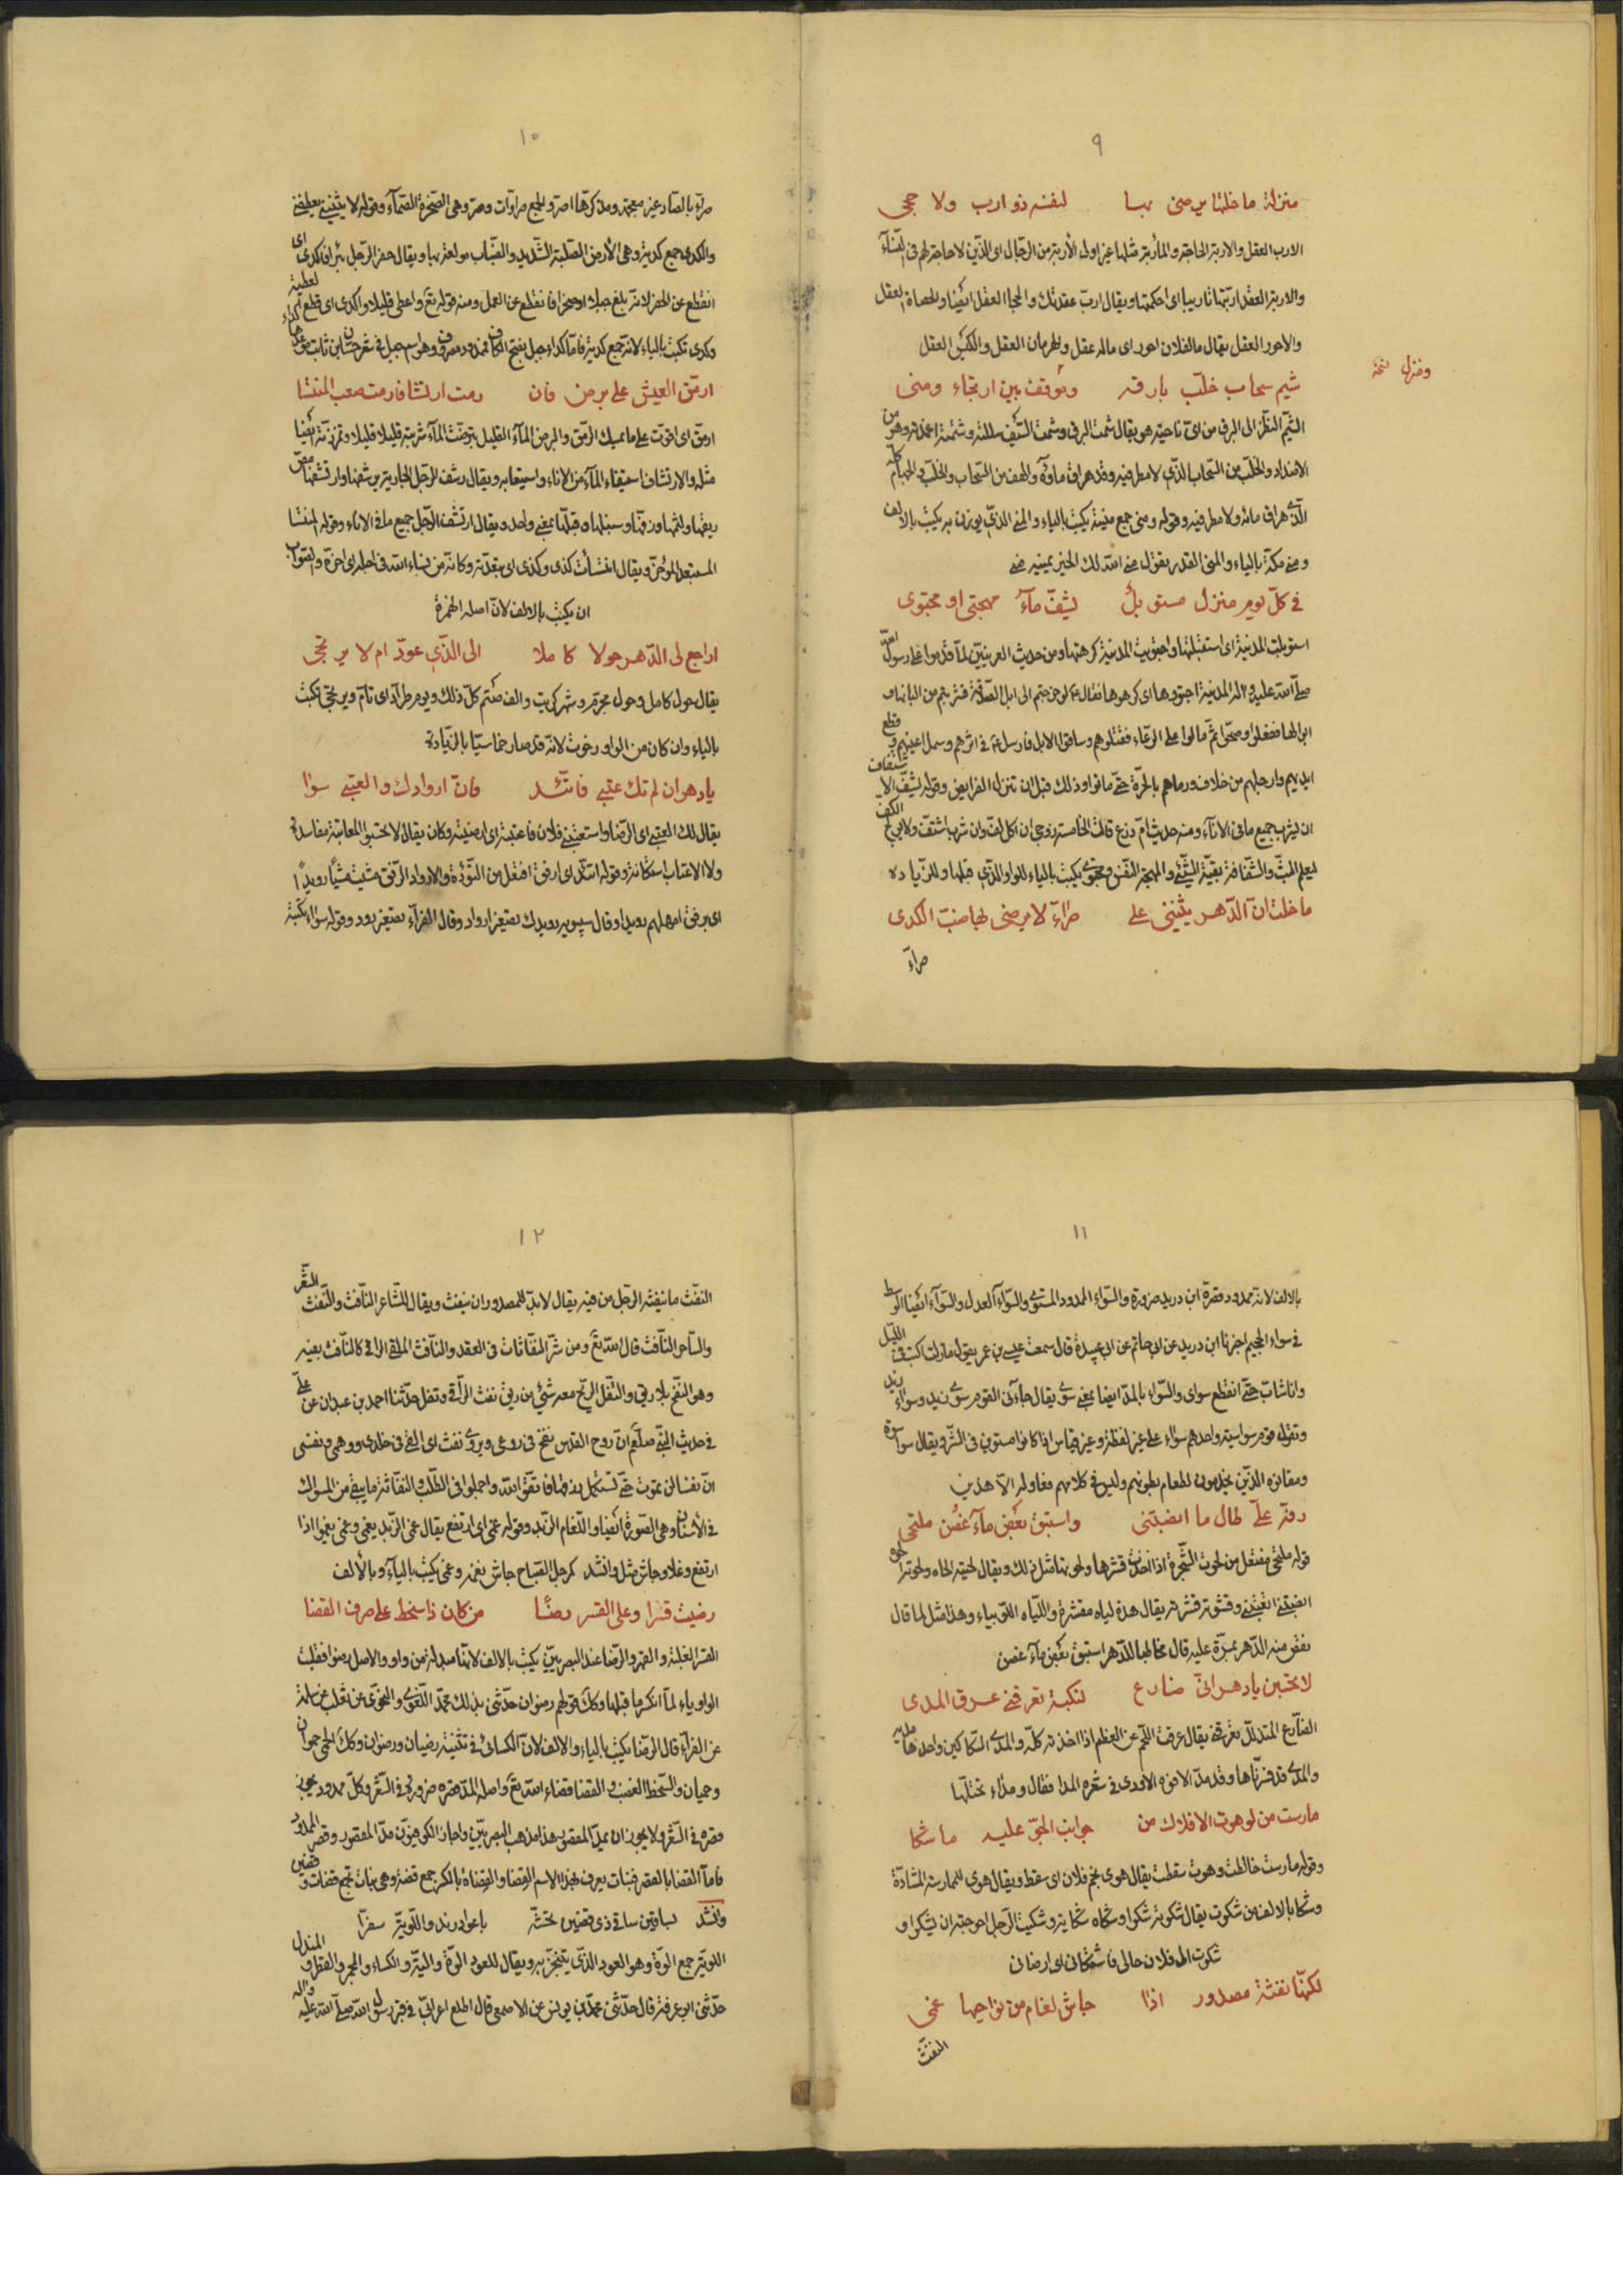 ٩
منزلة ما خلتها يرضى بها لنفسه ذو ارب ولا حجى
الارب العقل والاربة الحاجة والمأربة مثلها غير اولى الأربة من الرّجال اى الذّين لا حاجة لهم فى النّسآء
والاربة العقد ارّبتها تاريبا اى احكمتها ويقال ارّب عقدتك والحجا العقل ايضًا والحصاة العقل
والاحور العقل يقال ما لفلان احور اى ماله عقل والهرمان العقل والكَيْس العقل
ومنزل نسخة
شيم سحاب خلّب بارقه وموقف بين ارتجاء ومنى
الشّيم النظر الى البرق من اىّ ناحية هو يقال شمت البرق وشمت السّيف سللته وشمته اغمدته وهو من
الاضداد والخلّب من السّحاب الذّى لا مطر فيه وقد هراق ماؤه والهف من السّحاب والخلّب والجهام كلّه
الذّى هراق مائه ولا مطر فيه وقوله ومنى جمع منية يكتب بالياء والمنى الذّى يوزن به يكتب بالالف
ومنى مكّة بالياء والمنى القدر يقول منى اللّه لك الخير يمنيه منى
فى كلّ يوم منزل مستوبل يشفّ مآء مهجتى او مجتوى
استوبلت المدنية اى استثقلتها واجتويت المدنية كرهتها ومن حديث العرينيّين لمّا قدموا على رسول اللّه
صلّى اللّه عليه واله المدنية اجتووها اى كرهوها فقال ع لو خرجتم الى ابل الصّدقة فشربتم من البانها و
ابوالها ففعلوا وصحّوا ثمّ مالوا على الرّعاء فقتلوهم وساقوا الابل فارسل ع فى اثرهم وسمل اعينهم وقطع
ايديهم وارجلهم من خلاف ورماهم بالحرّة حتّى ماتوا وذلك قبل ان تنزل الفرايض وقوله يشفّ الاشتفاف
ان يشرب جميع ما فى الانآء ومنه حديث امّ زرع قالت الخامسة زوجى ان اكل لفّ وان شرب اشتفّ ولا يولج الكفّ
ليعلم البثّ والشّفافة بقيّة الشّيئ والمهجة النّفس ومجتوى يكتب بالياء للواو الذّى قبلها وللزّياده
ما خلت انّ الدّهر يثنينى على ضرّآء لا يرضى بها ضبّ الكدى
صرآء
١٠
صرّآء بالصّاد غير معجمة ومذكرها اصرّ والجمع صراوات وصرّ وهى الصّخرة الصّمآء وقوله لا يثنينى يعطفنى
والكدى جمع كدية وهى الأرض الصّلبة الشّديد والضّباب مولعة بها ويقال حفر الرّجل بئرا فاكدى اى
انقطع عن الحفر لانّه بلغ جبلا او صخرا فانقطع عن العمل ومنه قوله تع واعطى قليلا واكدى اى قطع لعطية
وكدى تكتب بالياء لانّه جمع كدية فامّا كداء جبل بفتح الكاف ممدود مصروف وهو اسم جبل فى شعر حسّان بن ثابت
ارمّق العيش على برض فان رمت ارتشافا رمت صعب المنتشا
ارمّق اى اقوّت على ما يمسك الرّمق والبرض المآء القليل يتبرّضت المآء شربته قليلا قليلا وتمزّزته ايضًا
مثله والارتشاف استيفاء المآء من الاناء واستيعابه ويقال رشف الرّجل الجارية يرشفها وارتشفها مصّ
ريقها ولثمها وقبّلها بمعنى واحد ويقال ارتشف الرّجل جميع ما فى الاناء وقوله المنتشا
المستبعد المؤخّر ويقال انتسأت كذى وكذى اى بعّدته وكانّه من نساء اللّه فى اجله اى اخرّه والصّواب
ان يكتب بالالف لانّ اصله الهمزة
اراجع لى الدّهر حولا كاملا الى الذّى عوّد ام لا يرتجى
يقال حول كامل وحول مجرّم وشهر كريت والف صتم كلّ ذلك ويوم طرّاد اى تامّ ويرتجى يكتب
بالياء وان كان من الواو رخوت لانّه قد صار خماسيّا بالزّيادة
يا دهر ان لم تك عتبى فاتّئد فانّ اروادك والعتبى سوا
يقال لك العتبى اى الرّضا واستعتبنى فلان فاعتبته اى ارضيته وكان يقال لا تحتبوا المعاتبة مفاسد
ولا الاعتاب استكانة وقوله اتّئد اى ارفق افتعل من التّؤدة والارواد الرّفق مشيت مشيًا رويدًا
اى برفق امهلهم رويدا وقال سيبويه رويدك تصغير ارواد وقال الفرّآء تصغير رود وقوله سواء يكتبه
١١
بالالف لانّه ممدود قصره ابن دريد ضرورة والسّواء الممدود المستوى والسّوآء العدل والسّوآء ايضًا الوسط
فى سواء الجحيم اخبرنا ابن دريد عن ابى حاتم عن ابى عبيدة قال سمعت عيسى بن عمر يقول مازلت اكتب فى اللّيل
وانا شابّ حتّى انقطع سواى والسّواء بالمدّ ايضا بمعنى سوى يقال جآءنى القوم سوى زيد وسواء زيد
وتقول قوم سواسية واحدهم سواء على غير لفظه وغير قياس اذا كانوا مستوين فى الشّر ويقال سواسوة
ومقاتوه الذّين يخدمون لطعام بطونهم وليس فى كلامهم مفاوله الّا هذين
رفّه علىّ طال ما انضبتنى واستبق بعض مآء غُصْن ملتحى
قوله ملتحى مفتعل من لحوت الشّجرة اذا اخذت قشرها ولحوتها مثل ذلك ويقال لحيته الحاه ولحوته الحوه
يقال هذه لياه مقشّرة واللّياه اللّوبياء وهذا مثل لما قال
بغض منه الدّهر بمرّة عليه قال مخاطبا للدّهر استبق بعض مآء غصن
لا تحسبن يا دهر انّى ضارع لنكبة تعرقنى عرق المدى
الضّارع المتذلّل تعرقنى يقال عرقت اللّحم عن العظم اذا اخذته كلّه والمدى السّكاكين واحدها مدية
والمدى قد فسّرناها وقد مدّ الافوه الاودى فى شعره المدا فقال ومداء تختلّها
مارست من لو هوت الافلاك من جوانب الجوّ عليه ما شكا
وقوله مارست خالطت وهوت سقطت يقال هوى نجم فلان اى سقط ويقال هوى الممارسة المشادّة
وشكا بالالف من شكوت يقال شكوته شكوا وشكاه شكاية وشكيت الرّجل احوجته ان يشكو و
شكوت الى فلان حالى فاشكانى اى ارضانى
لكنّها نفثة مصدور اذا جاش لغام من نواحيها غمى
النفث
١٢
النفث ما ينفثه الرّجل من فيه يقال لا بدّ للمصدور ان ينفث ويقال للشّاعر النّافث والنّفث الشّعر
والسّاحر النّافث قال اللّه تع ومن شرّ النّفّاثات فى العقد والنّافث الملقى الرّاقى كالنّافث بفيه
وهو النّفخ بلا ريق والتّفل الرّيح معه شيئ من ريق نفث الرّاقى وتفل حدّثنا احمد بن عبدان عن علىّ
فى حديث النّبى صلّعم انّ روح القدس نفخ فى روعى ويروى نفث اى القى فى خلدى ووهمى ونفسى
انّ نفسا لن تموت حتّى تستكمل رزقها فاتّقوا اللّه واجملوا فى الطّلب والنّفاثة ما يبقى من المسواك
فى الأسنان وهى الضّوزة ايضا واللّغام الزّبد وقوله غمى اى ارتفع يقال غمى الزّبد يغمى وغمى يغموا اذا
ارتفع وعلا وجاش مثل وانشد كمرجل الصّباح جاش بغمزه وغمى يكتب باليآء وبالألف
رضيت قسرا وعلى القسر رضًا من كان ذا سخط على صرف القضا
القسر الغلبة والقهر والرّضا عند البصريّين يكتب بالالف لانّها مبدلة من واو والاصل رضوا فقلبت
الواو ياء لمّا انكسر ما قبلها وكذلك قولهم رضوان حدّثنى بذلك محمّد اللّغوى والنّحوى عن ثعلب عن سلمة
عن الفرّآء قال الرّضا يكتب بالياء والالف لانّ الكسائى فى تثنية رضيان ورضوان وكذلك الحمى حموان
وحميان والسّخط الغضب والقضا قضاء اللّه تع واصله المدّ قصره ضرورة فى الشّعر وكلّ ممدود يجوز
قصره فى الشّعر ولا يجوز ان يمدّ المقصور هذا مذهب البصريّين واجاز الكوفيّون مدّ المقصور وقصر الممدود
فامّا القضا بالقصر فنبات يعرف بهذا الاسم القضا والقضاه بالكسر جمع قضة وهى نبات تجمع قضات وقضين
وانشد بساقين ساقى ذى قضين تحشّه باعواد رند والّلويّة سفرًا
اللويّة جمع الوّة وهو العود الذّى يتبخّر به ويقال للعود الوّة واليّة والكساء والمجمر والقطر والمندل
حدّثنى ابن عرفة قال حدّثنى محمّد بن يونس عن الاصمعى قال اطلع اعرابىّ فى قبر رسول اللّه صلّى اللّه عليه واله